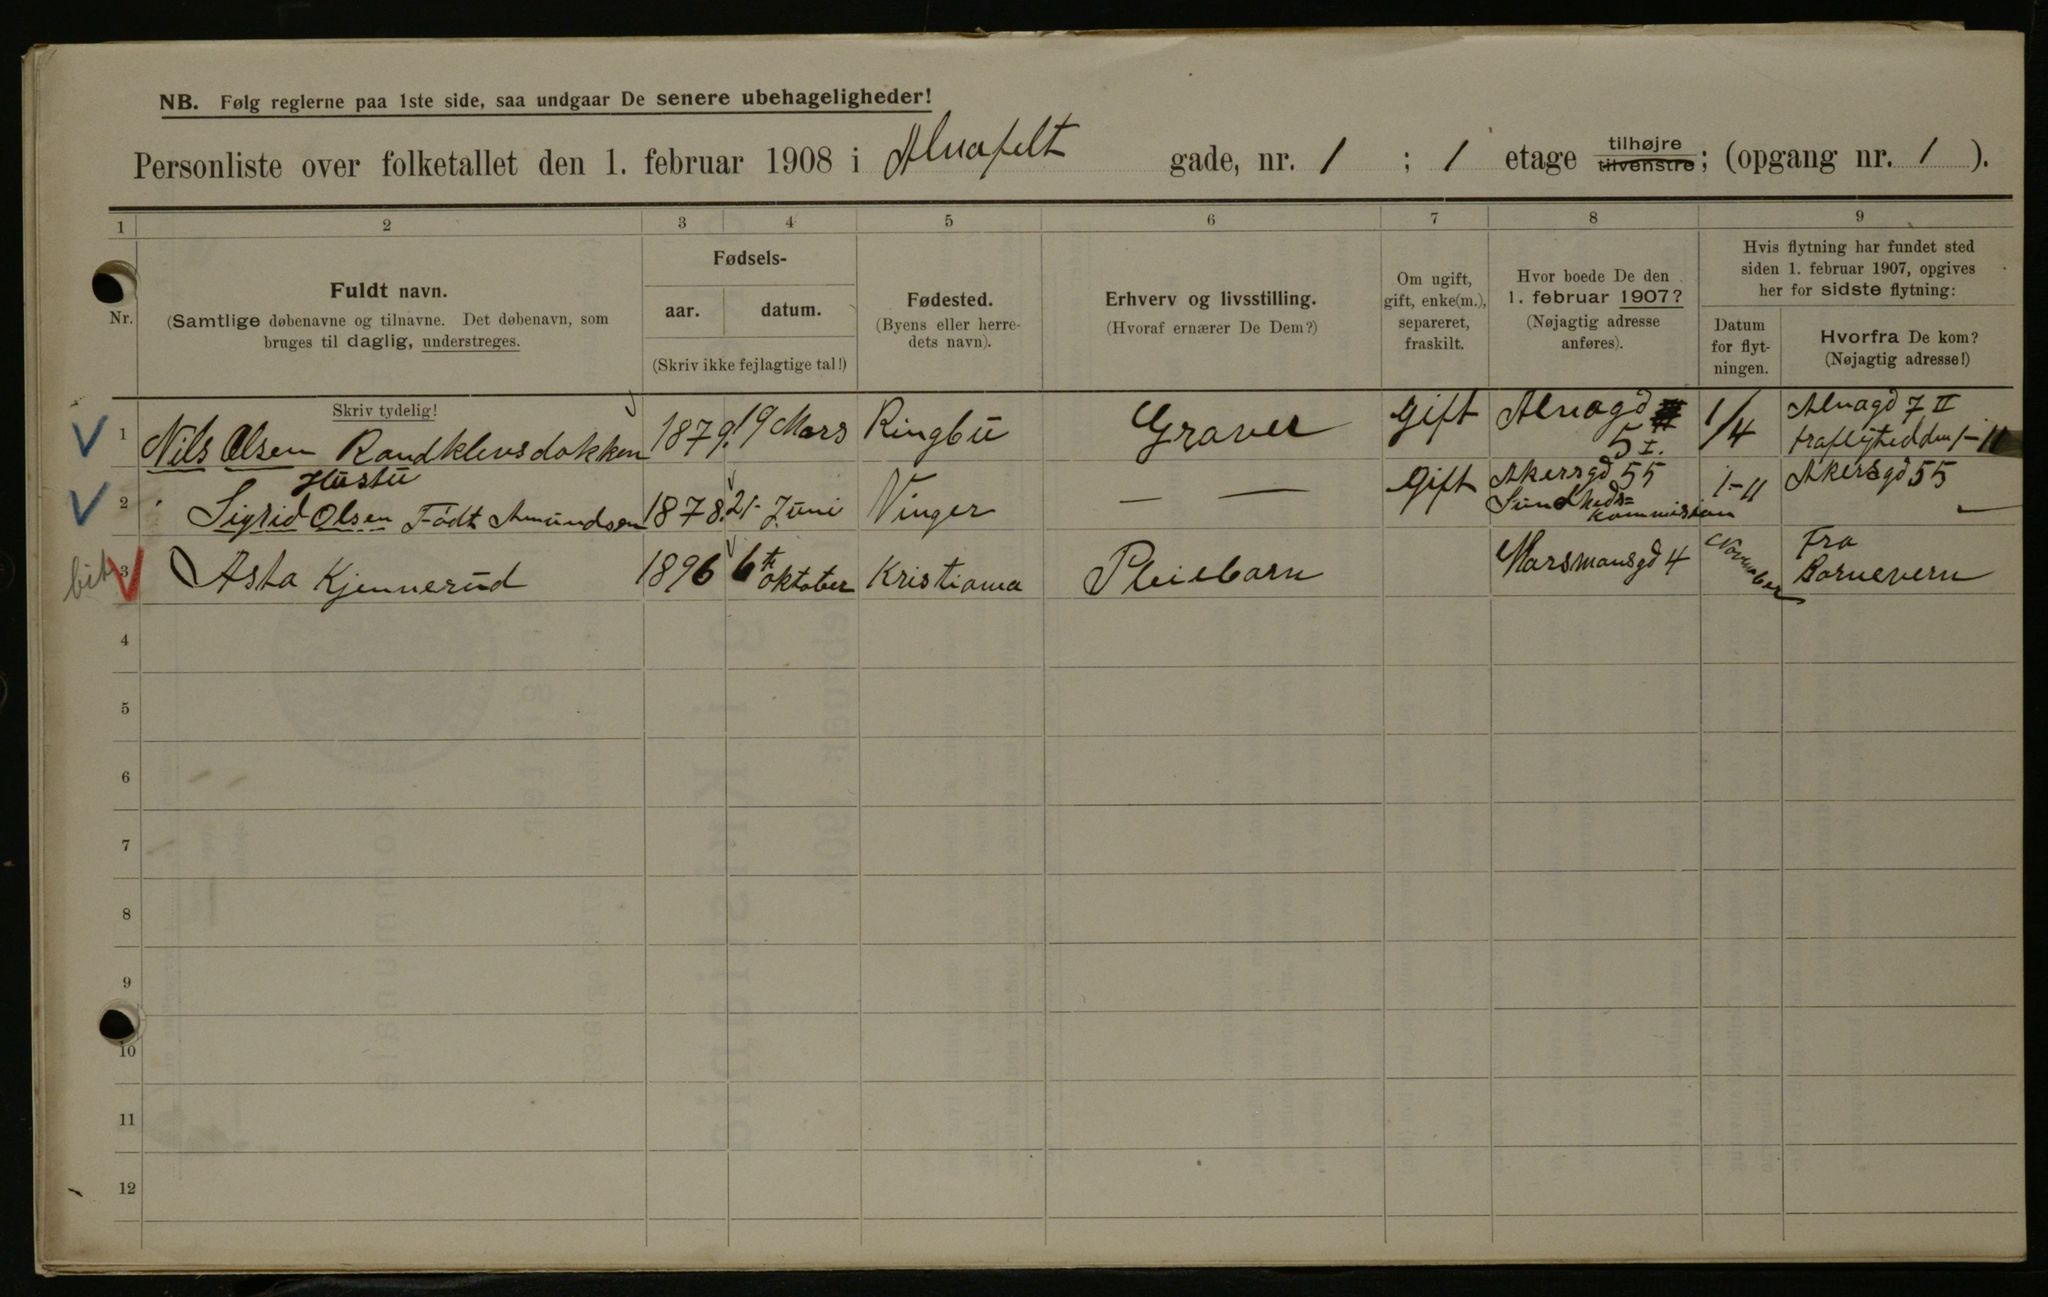 NB. Følg reglerne paa 1ste side, saa undgaar De senere ubehageligheder!
Personliste over folketallet den 1. februar 1908 i Alnafelt gade, nr. 1 ; 1 etage tilhøjre tilvenstre; (opgang nr. 1 ).
1 2 3 4 5 6 7 8 9
Nr.
Fuldt navn.
(Samtlige døbenavne og tilnavne. Det døbenavn, som
bruges til daglig, understreges.
Skriv tydelig!
Fødsels-
aar. datum.
(Skriv ikke fejlagtige tal!)
Fødested.
(Byens eller herre-
dets navn).
Erhverv og livsstilling.
(Hvoraf ernærer De Dem?)
Om ugift,
gift, enke(m.),
separeret,
fraskilt.
Hvor boede De den
1. februar 1907?
(Nøjagtig adresse
anføres).
Hvis flytning har fundet sted
siden 1. februar 1907, opgives
her for sidste flytning:
Datum
for flyt-
ningen.
Hvorfra De kom?
(Nøjagtig adresse!)
1 Nils Olsen Randklevsdokken 1879. 19 Mars Ringbu Graver Gift Alnagd 5 I. 1/4 Alnagd 7 II
fraflythed den 1-11
Hustu
2 Sigrid Olsen Födt Amundsen 1878. 21- Juni Vinger — — Gift Akersgd 55 1-11 Akersgd 55
Sundheds=
kommision
bit 3 Asta Kjennerud 1896 6te oktober Kristiania Pleiebarn Marsmansgd 4 November Fra
Barnevern
4
5
6
7
8
9
10
11
12